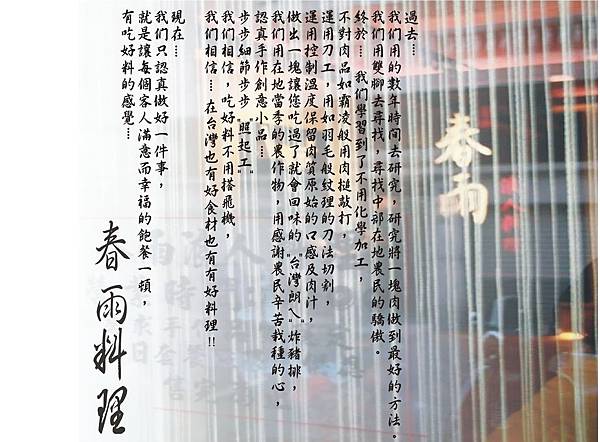 過去....
我們用的數年時間去研究，研究將一塊肉做到最好的方法。
我們用雙腳去尋找，尋找中部在地農民的驕傲。
終於.... 我們學習到了不用化學加工，
不對肉品如霸凌般用肉槌敲打，
運用刀工，用如羽毛般紋理的刀法切割，
運用控制溫度保留肉質原始的口感及肉汁，
做出一塊讓您吃過了就會回味的"台灣朗ㄟ"炸豬排，
我們用在地當季的農作物，用感謝農民辛苦栽種的心，
認真手作創意小品...
步步細節步步"照起工"
我們相信，吃好料不用搭飛機，
我們相信... 在台灣也有好食材也有有好料理!!
現在....
我們只認真做好一件事，
就是讓每個客人滿意而幸福的飽餐一頓，
有吃好料的感覺...
春雨料理
春雨